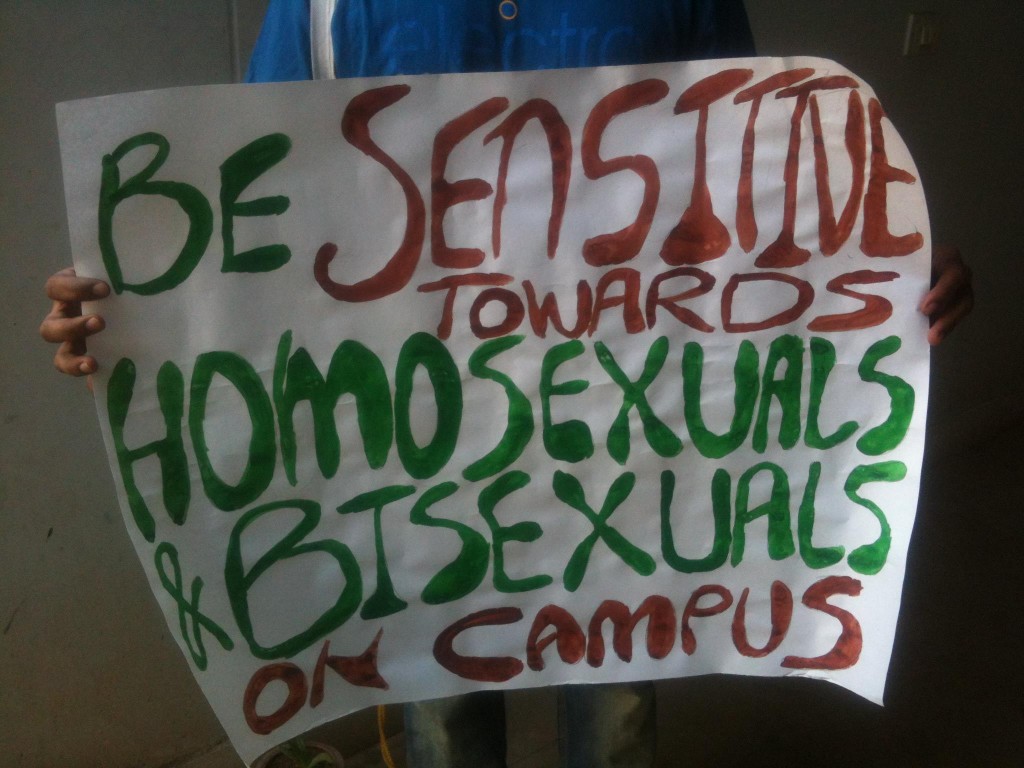 electro
BE SENSITIVE
TOWARDS
HOMOSEXUALS
& BISEXUALS
ON CAMPUS